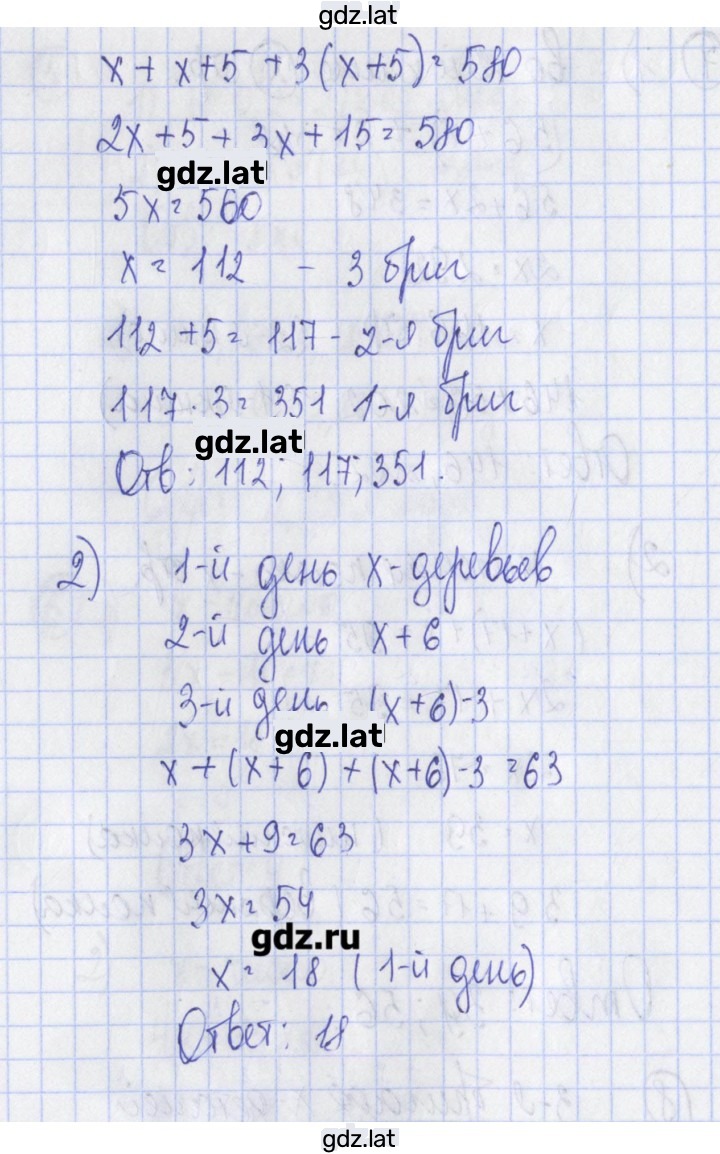 gdz.lat
x + x+5 + 3(x+5) = 580
2x+5 + 3x+15 = 580
gdz.lat
5x = 560
x = 112 - 3 бриг
112 +5 = 117 - 2-я бриг
117 · 3 = 351 1-я бриг
gdz.lat
Отв: 112; 117; 351.
2) 1-й день x-деревьев
2-й день x+6
3-й день (x+6)-3
gdz.lat
x + (x+6) + (x+6)-3 = 63
3x+9=63
3x=54
gdz.ru
x = 18 (1-й день)
Ответ: 18
gdz.lat